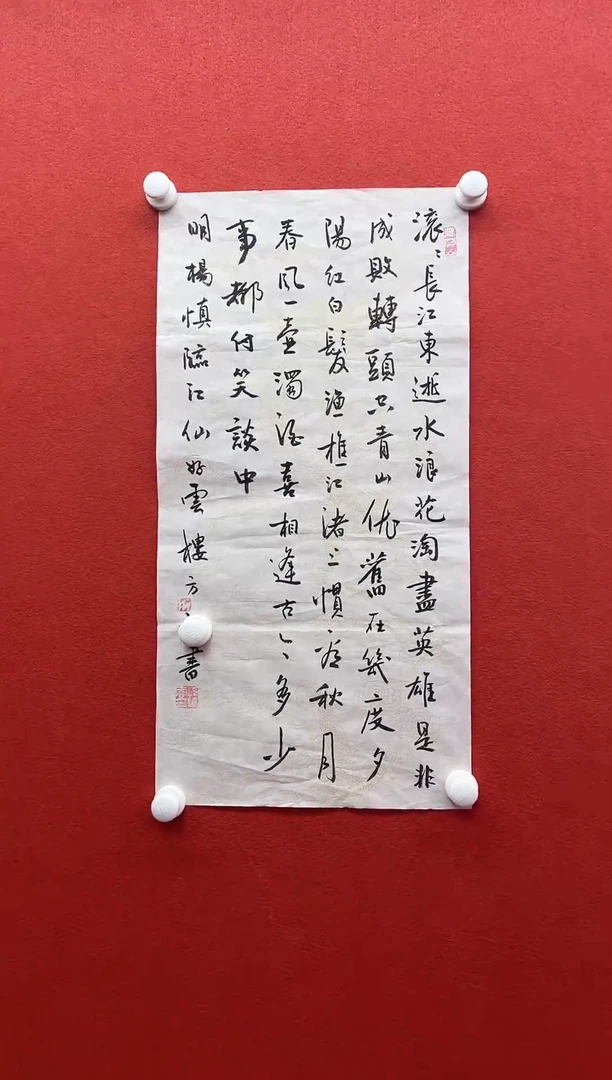 滚〻長江東逝水浪花淘盡英雄是非
成敗轉頭空青山依舊在幾度夕
陽紅白髮漁樵江渚上慣看秋月
春風一壺濁酒喜相逢古今多少
事都付笑談中
明楊慎臨江仙好雲樓方書